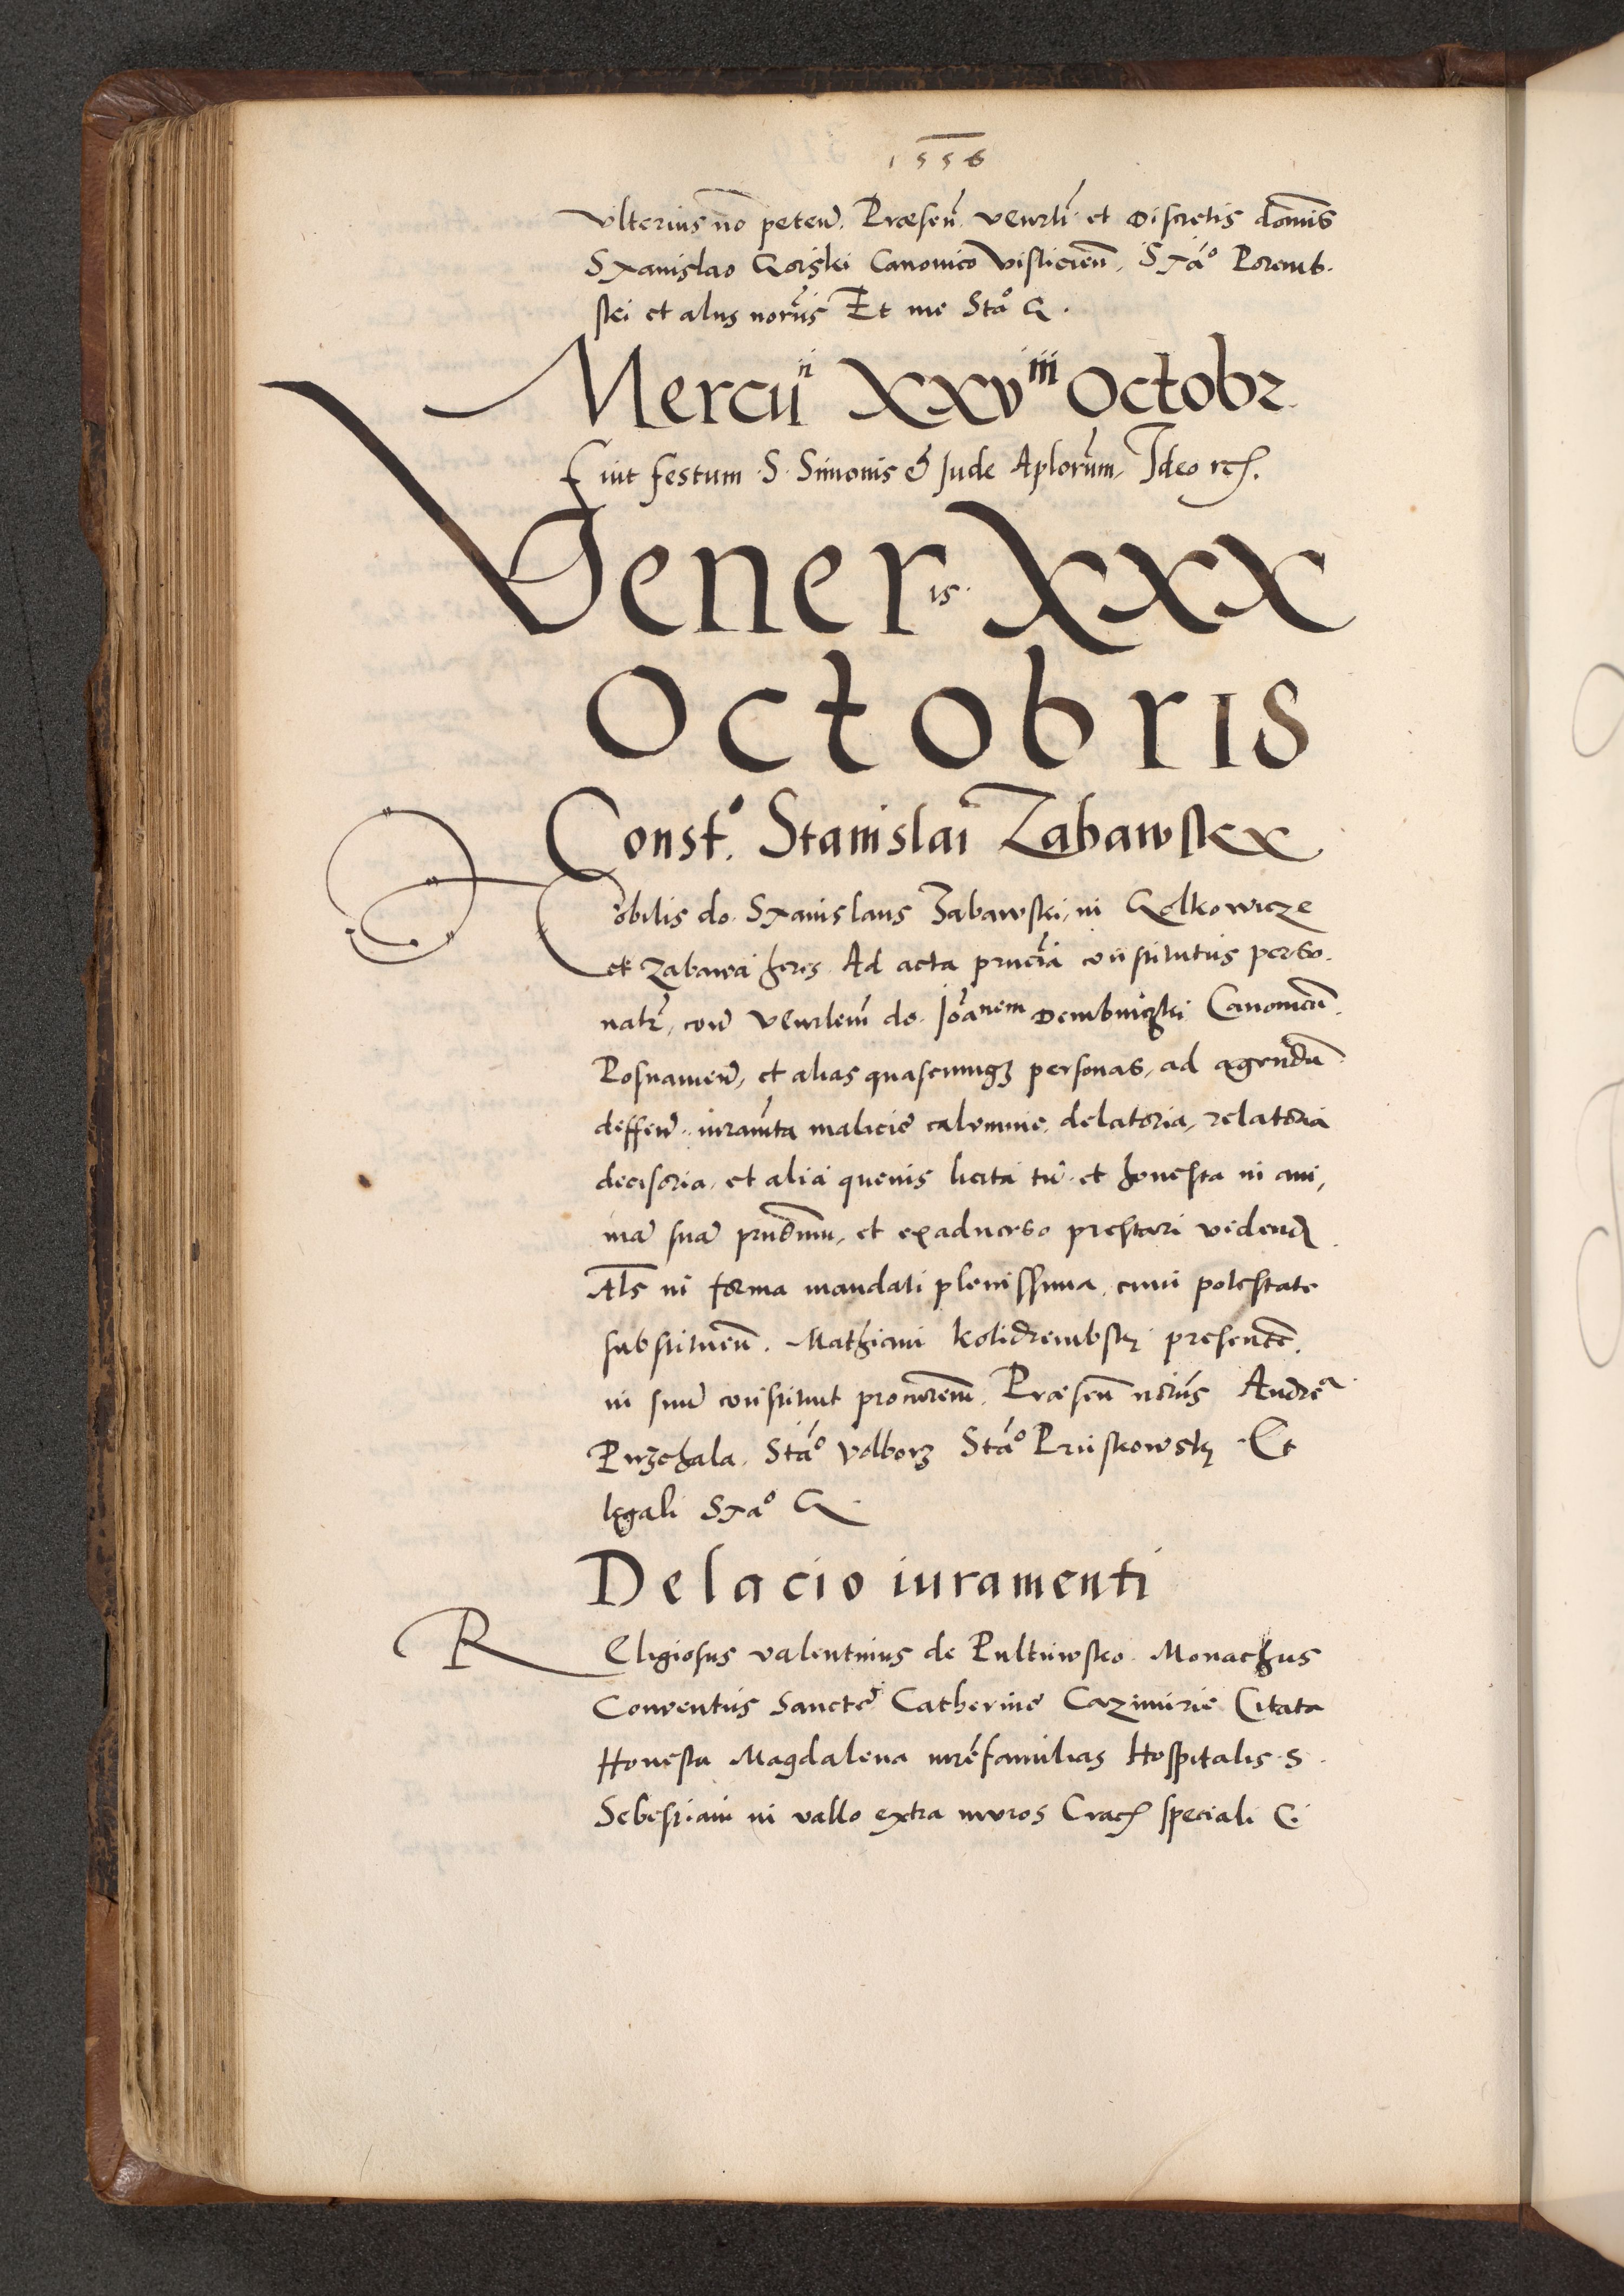 1556
Vlterius no peteñ. Præseñ. veñrli et Discretis domis
Stanislao Gorski Canonico Vislicieñ. Stao Poremb.
ski et aliis noriis Et me Stao G.
Mercuri XXVIII Octobr.
Fuit festum S. Simonis & Jude Aplorum. Ideo
Veneris XXX
Octobris
Const.o Stanislai Zabawsky
Nobilis do. Stanislaus Zabawski, in Golkowicze
et Zabawa heres. Ad acta prncia constitutus perso.
nalr, con veñrlem do. Joanem Dembinski Canonicu.
Posnanieñ, et alias quascunqz personas, ad agendu
deffen. iuramta malicie calumnie, delatoria, relatoria
decisoria, et alia quevis licita tn et honesta in ani,
ma sua, et exaduerso prestari vidend.
Als in forma mandati plenissima, cum potestate
substituen. Mathiam presente.
in suu constituit procrem. Præsen noriis Andrea
Przchala. Stao Volborz Stao Pruskowsky Et
legali Stao G.
Delacio iuramenti
REligiosus Valentinus de Pultowsko Monachus
Conventus Sancte Catherine Cazimirie Citata
Honesta Magdalena mrefamilias Hospitalis S.
Sebestiani in vallo extra muros Crac speciali C.